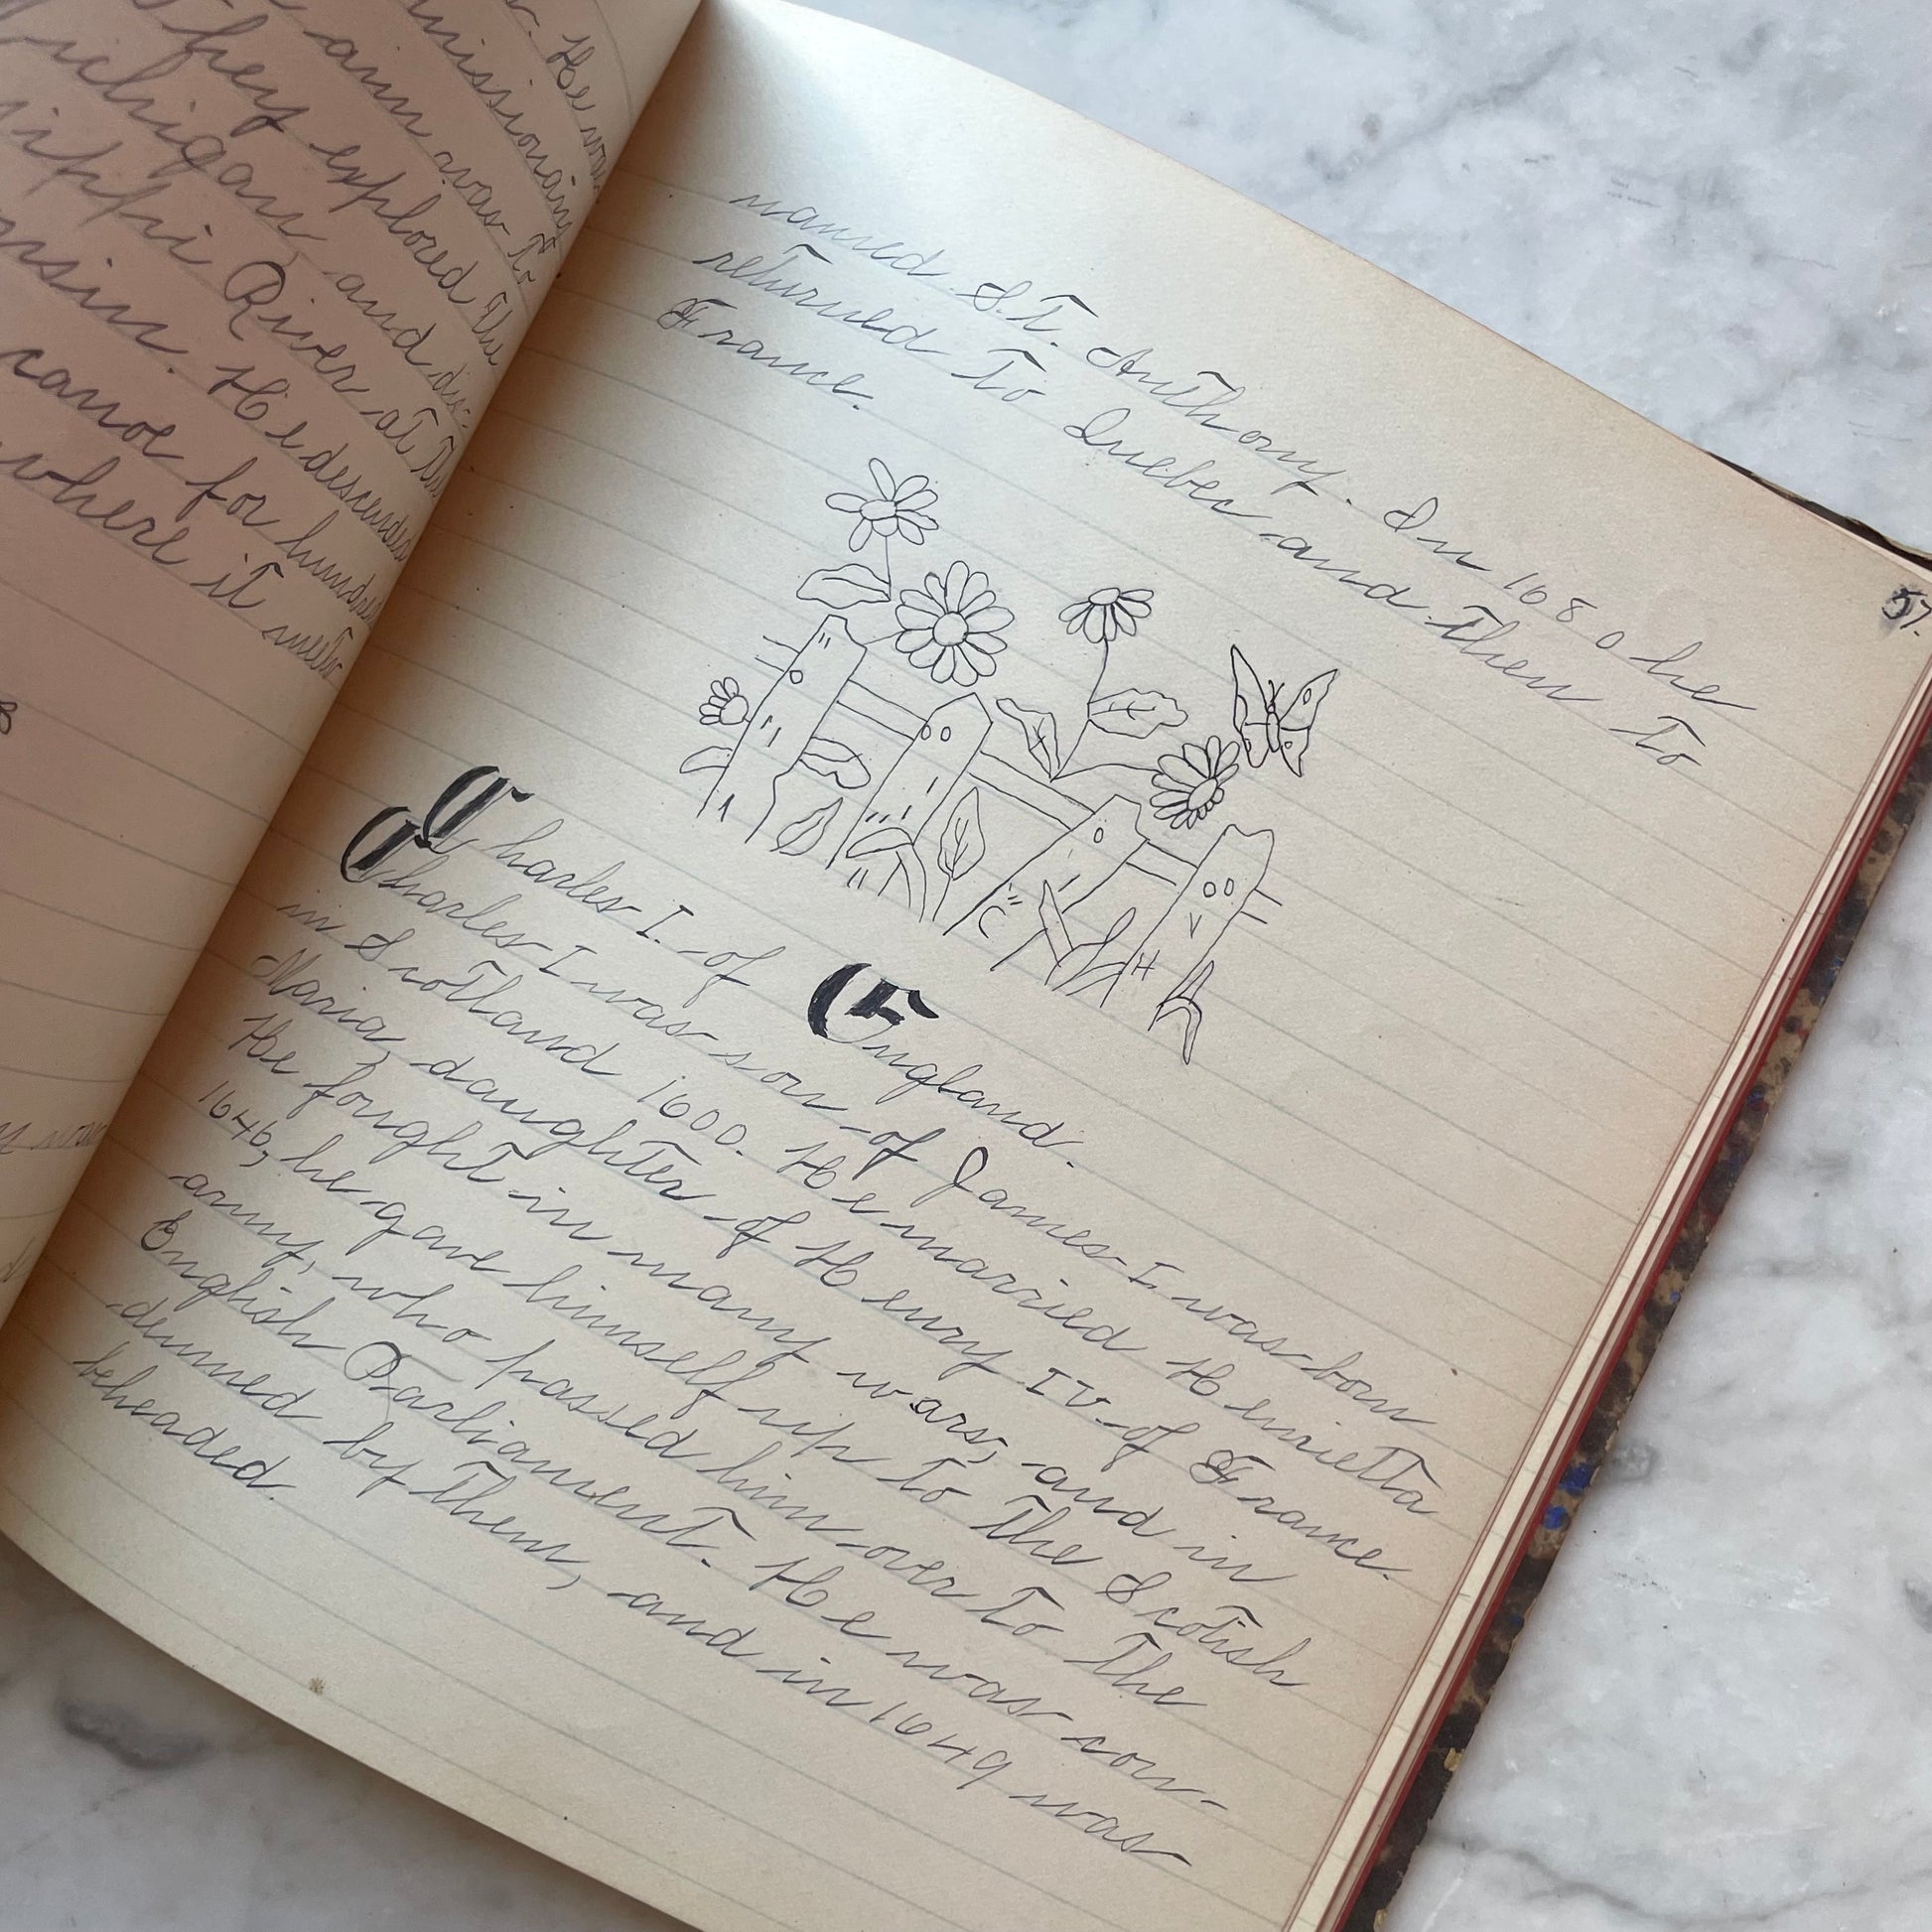 He was
missionary
aim was to
They explored the
ichigan, and dis-
sippi River at the
onsin. He descended
canoe for hundred
where it meets
57.
named S.T. Anthony. In 1680 he
returned to Quebec and then to
France.
Charles I. of England.
Charles I was son of James I. was born
in Scotland 1600. He married Henrietta
Maria, daughter of Henry IV of France.
He fought in many wars, and in
1646, he gave himself up to the Scotish
army, who passed him over to the
English Parliament. He was con-
demned by them, and in 1649 was
beheaded.